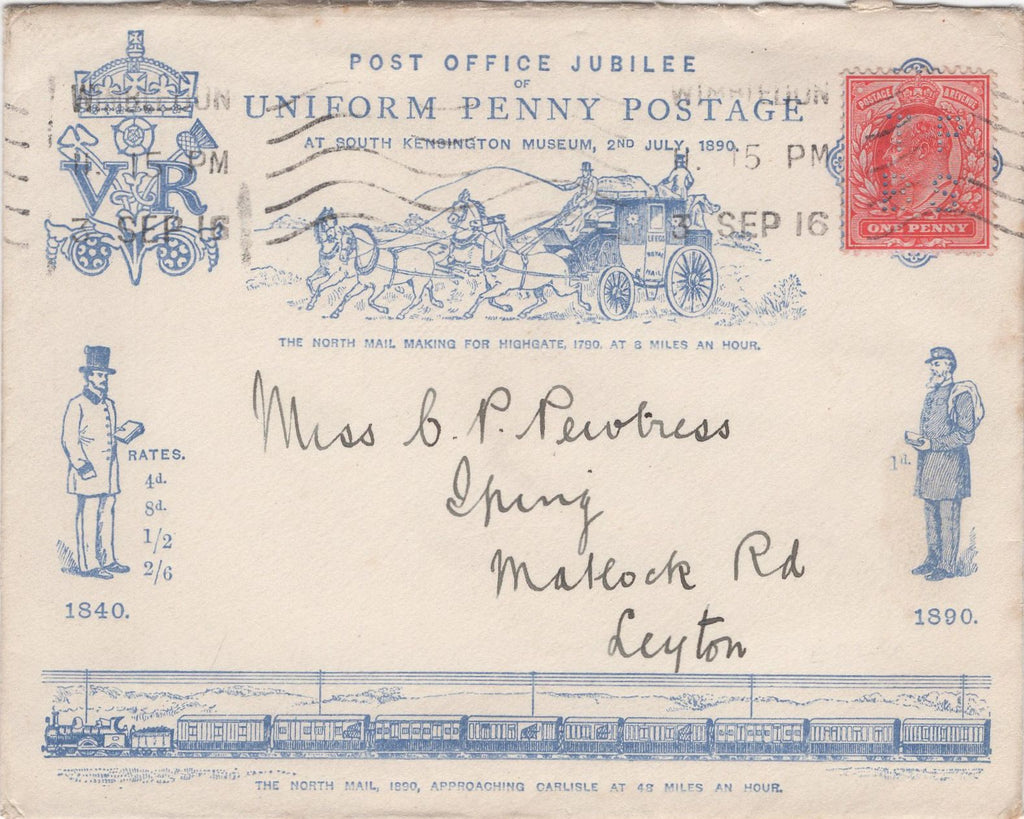 POST OFFICE JUBILEE
OF
UNIFORM PENNY POSTAGE
AT SOUTH KENSINGTON MUSEUM, 2ND JULY, 1890.
VR
WIMBLEDON
15 PM
3 SEP 16
WIMBLEDON
15 PM
3 SEP 16
POSTAGE & REVENUE
ONE PENNY
MAIL
THE NORTH MAIL MAKING FOR HIGHGATE, 1790, AT 8 MILES AN HOUR.
Miss C. P. Pewtress
Iping
Matlock Rd
Leyton
RATES.
4d.
8d.
1/2
2/6
1840.
1d.
1890.
THE NORTH MAIL, 1890, APPROACHING CARLISLE AT 48 MILES AN HOUR.